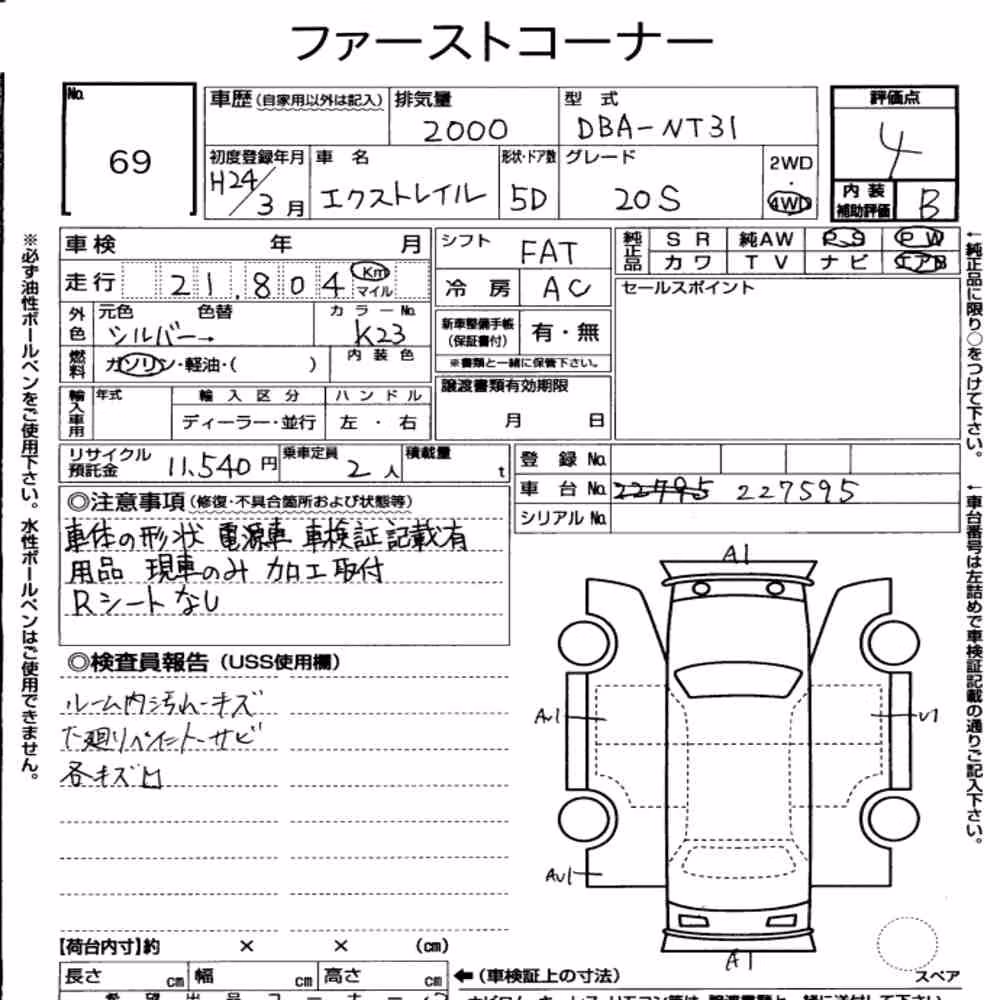 ファーストコーナー
No.
69
車歴(自家用以外は記入)
排気量
2000
型 式
DBA-NT31
評価点
4
初度登録年月
H24/3月
車 名
エクストレイル
形状・ドア数
5D
グレード
20S
2WD
・
4WD
内 装
補助評価
B
※必ず油性ボールペンをご使用下さい。水性ボールペンはご使用できません。
車検 年 月
走行 21,804 Km
マイル
外色
元色 色替
シルバー→
カラーNo.
K23
燃料
ガソリン・軽油・( )
内 装 色
輸入車用
年式
輸 入 区 分
ディーラー・並行
ハ ン ド ル
左 ・ 右
シフト
FAT
冷 房
AC
新車整備手帳
(保証書付)
有・無
※書類と一緒に保管下さい。
譲渡書類有効期限
月 日
純正品
S R 純AW P S P W
カ ワ T V ナ ビ エアB
セールスポイント
←純正品に限り○をつけて下さい。
リサイクル
預託金
11,540 円
乗車定員
2 人
積載量
t
登 録 No.
車 台 No. 22795 227595
シリアル No.
←車台番号は左詰めで車検証記載の通りご記入下さい。
◎注意事項(修復・不具合箇所および状態等)
車体の形状 電源車 車検証記載有
用品 現車のみ 加工取付
Rシートなし
◎検査員報告(USS使用欄)
ルーム内汚れ・キズ
下廻りペイント・サビ
各キズ凹
A1
AU1
U1
AU1
A1
スペア
【荷台内寸】約 × × (cm)
長さ cm 幅 cm 高さ cm
←(車検証上の寸法)